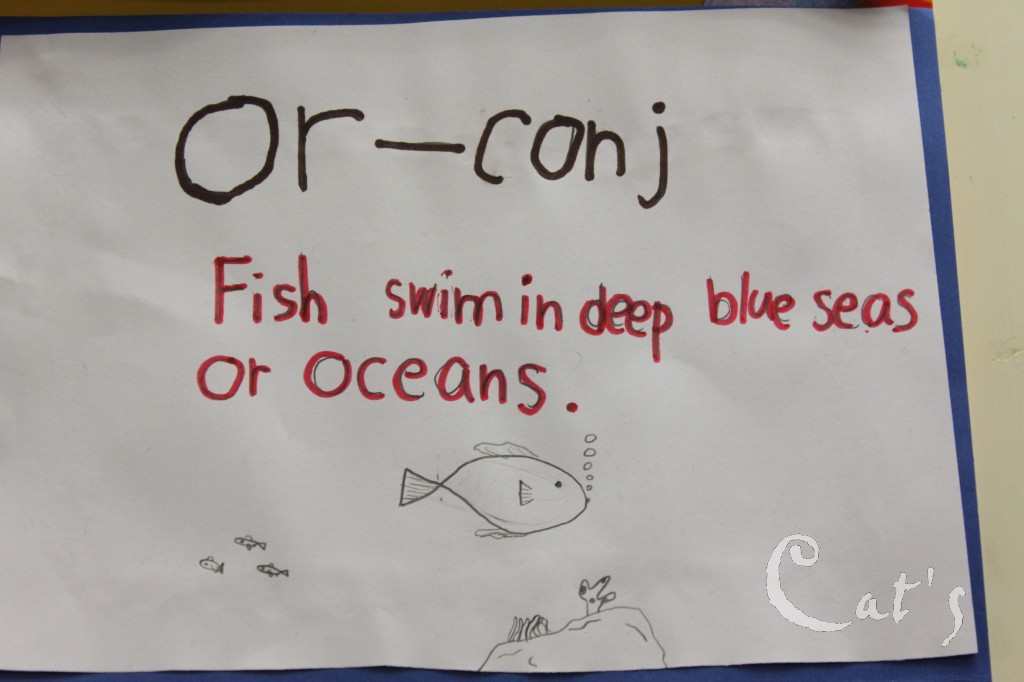 Or – conj
Fish swim in deep blue seas
or oceans.
Cat's